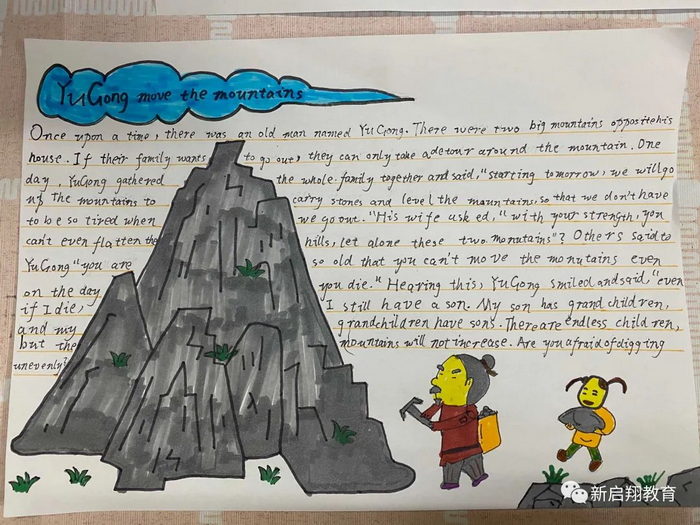 YuGong move the mountains
Once upon a time, there was an old man named YuGong. There were two big mountains opposite his
house. If their family wants to go out, they can only take a detour around the mountain. One
day, YuGong gathered the whole family together and said, "starting tomorrow, we will go
up the mountains to carry stones and level the mauntains, so that we don't have
to be so tired when we go out." His wife usk ed, "with your strength, you
can't even flatten the hills, let alone these two monutains"? Others said to
YuGong "you are so old that you can't move the monytains even
on the day you die." Hearing this, YuGong smiled and said, "even
if I die, I still have a son. My son has grand children,
and my grandchildren have sons. There are endless children,
but the mountains will not increase. Are you afraid of digging
unevenly?
新启翔教育